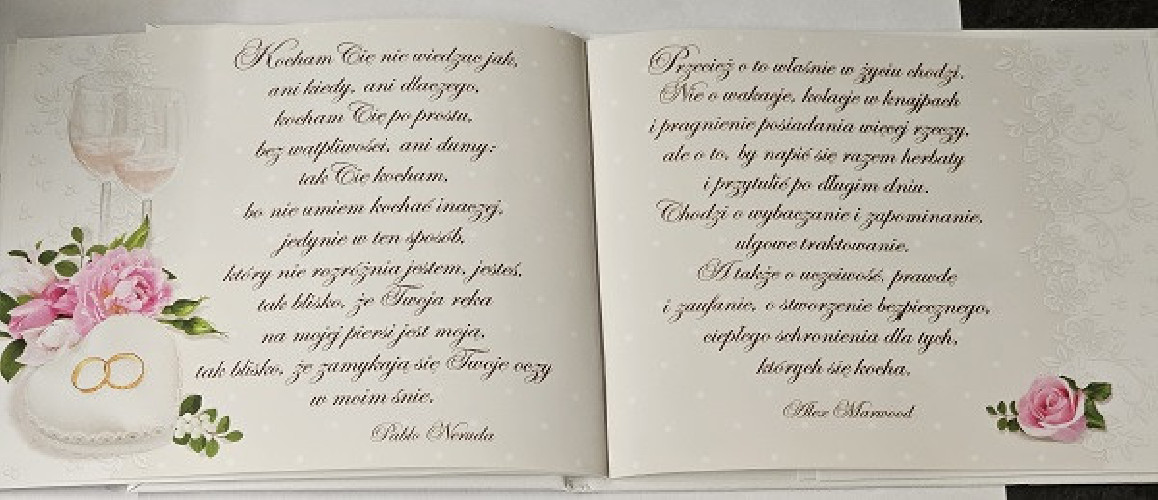 Kocham Cie nie wiedzac jak,
ani kiedy, ani dlaczego,
kocham Cie po prostu,
bez watpliwości, ani dumy:
tak Cie kocham,
bo nie umiem kochać inaczej,
jedynie w ten sposób,
który nie rozróżnia jestem, jesteś,
tak blisko, że Twoja reka
na mojej piersi jest moja,
tak blisko, że zamykaja sie Twoje oczy
w moim śnie.
Pablo Neruda
Przecież o to właśnie w życiu chodzi.
Nie o wakacje, kolacje w knajpach
i pragnienie posiadania więcej rzeczy,
ale o to, by napić się razem herbaty
i przytulić po długim dniu.
Chodzi o wybaczanie i zapominanie,
ulgowe traktowanie.
A także o uczciwość, prawdę
i zaufanie, o stworzenie bezpiecznego,
ciepłego schronienia dla tych,
których się kocha.
Alex Marwood